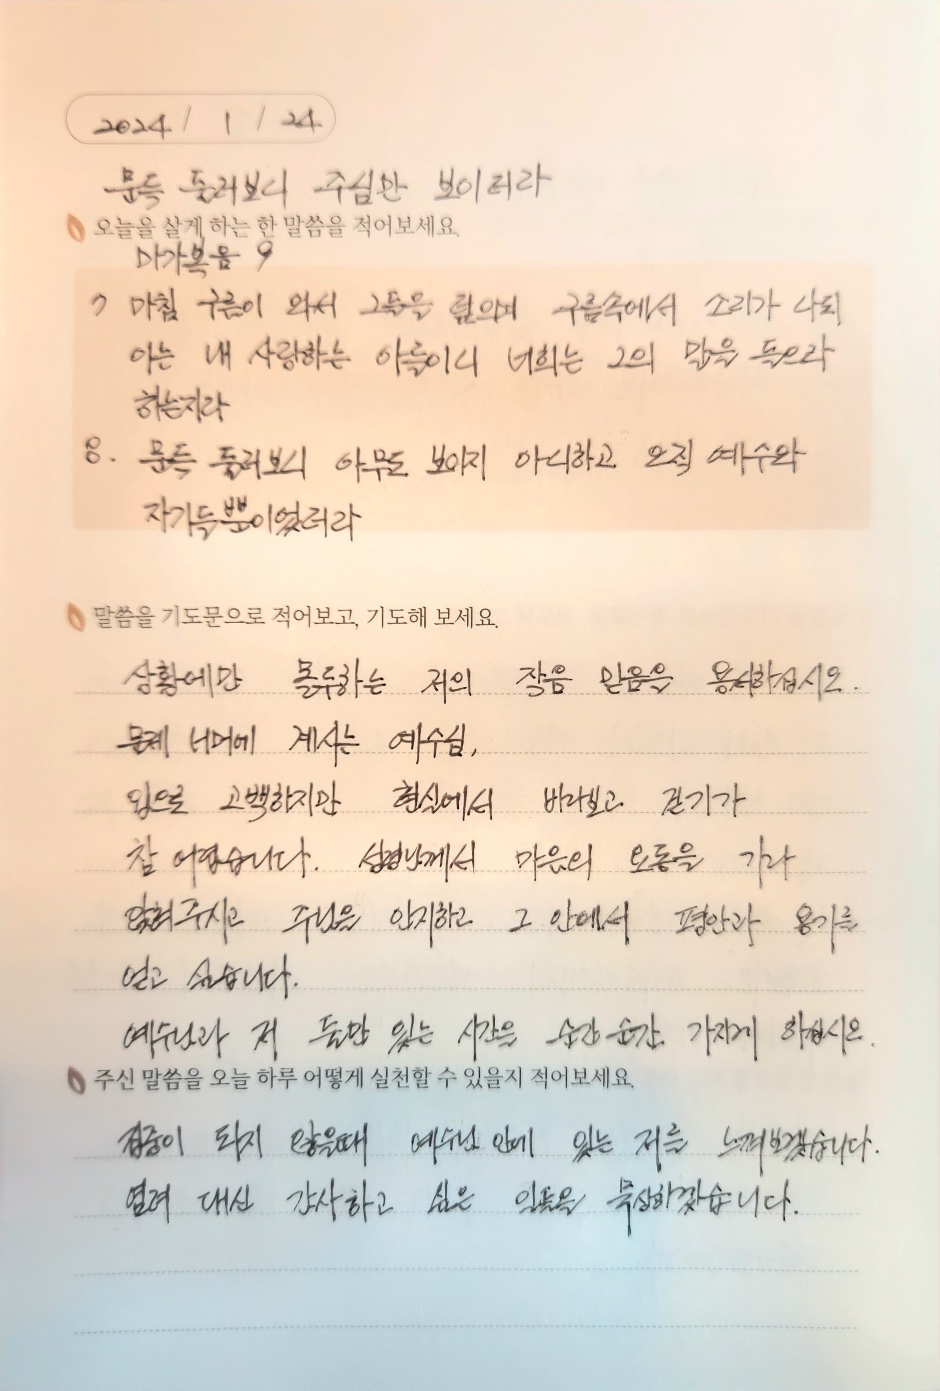 2024 / 1 / 24
문득 둘러보니 주님만 보이더라
오늘을 살게 하는 한 말씀을 적어보세요.
마가복음 9
7 마침 구름이 와서 그들을 덮으며 구름속에서 소리가 나되
이는 내 사랑하는 아들이니 너희는 그의 말을 들으라
하는지라
8. 문득 둘러보니 아무도 보이지 아니하고 오직 예수와
자기들뿐이었더라
말씀을 기도문으로 적어보고, 기도해 보세요.
상황에만 몰두하는 저의 작음 믿음을 용서하십시오.
문제 너머에 계시는 예수님,
입으로 고백하지만 현실에서 바라보고 걷기가
참 어렵습니다. 성령님께서 마음의 요동을 가라
앉혀주시고 주님을 인지하고 그 안에서 평안과 용기를
얻고 싶습니다.
예수님과 저 둘만 있는 시간을 순간 순간 가지게 하십시오.
주신 말씀을 오늘 하루 어떻게 실천할 수 있을지 적어보세요.
집중이 되지 않을때 예수님 안에 있는 저를 느껴보겠습니다.
염려 대신 감사하고 싶은 일들을 묵상하겠습니다.